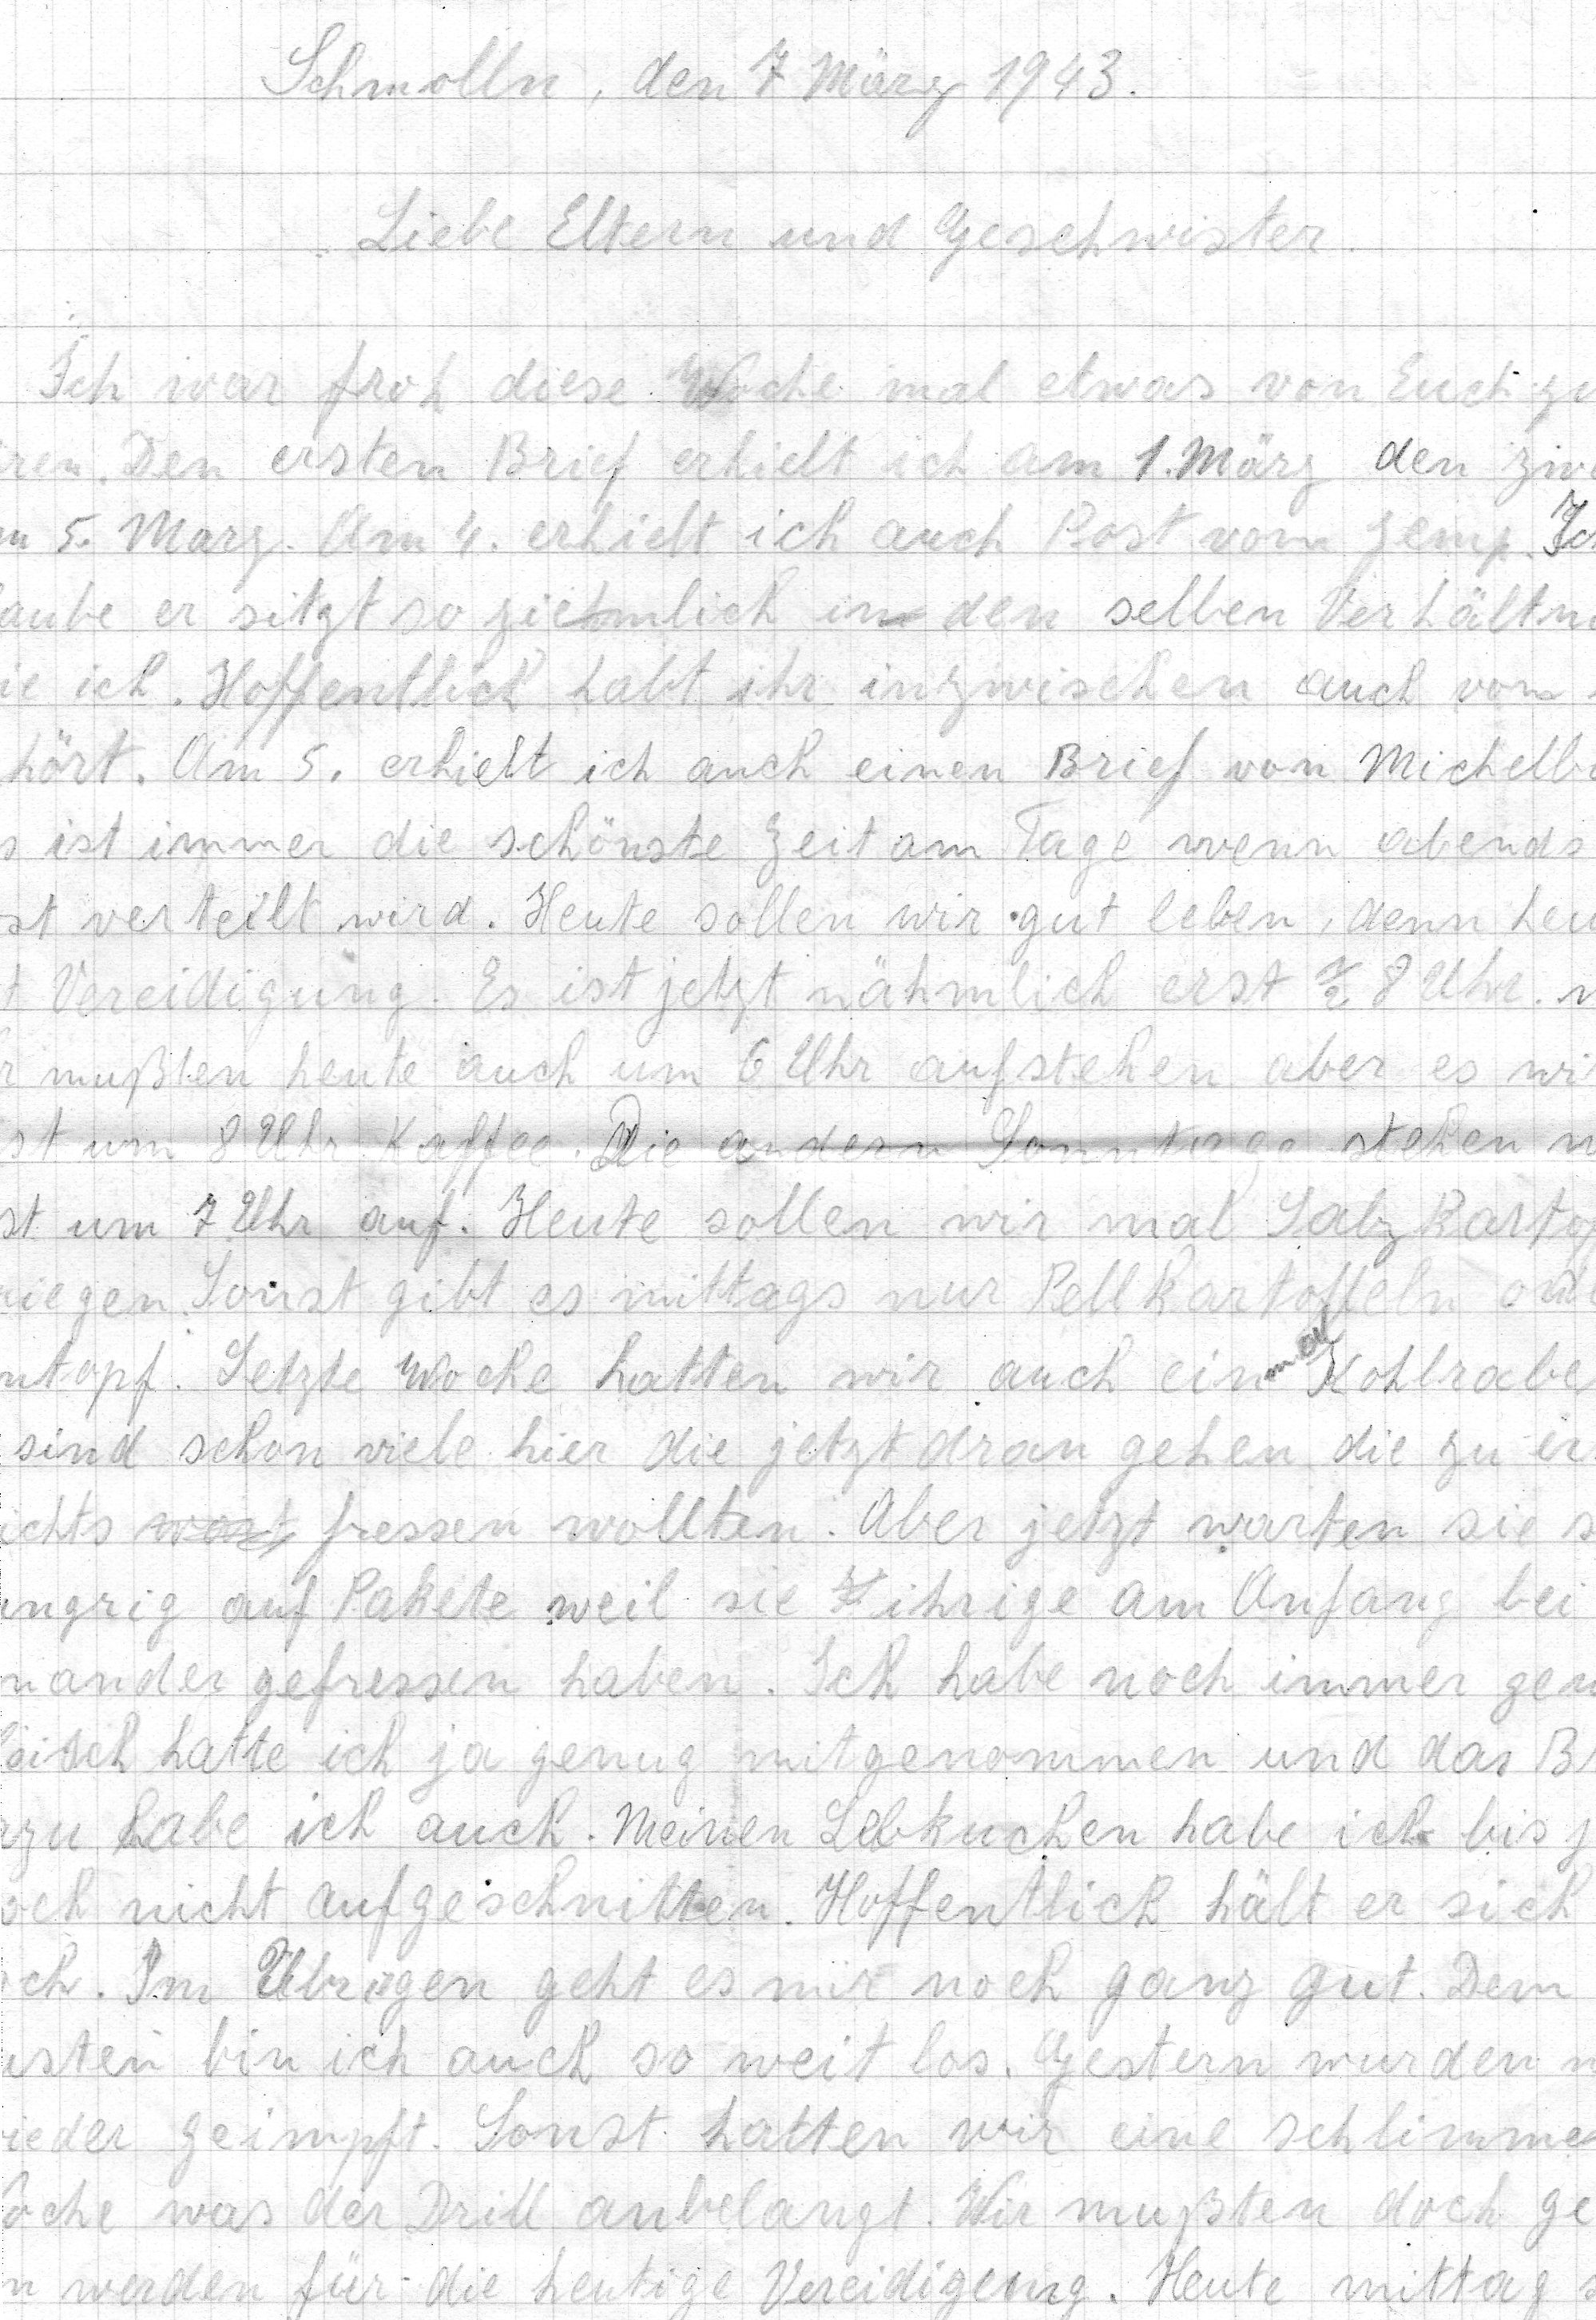 Schmolln, den 7 März 1943.
Liebe Eltern und Geschwister.
Ich war froh diese Woche mal etwas von Euch zu
ren. Den ersten Brief erhielt ich am 1. März den zwe
m 5. Marz. Am 4. erhielt ich auch Post vom Jemp. Ich
laube er sitzt so ziehmlich in den selben Verhältn
ie ich. Hoffentlich habt ihr inzwischen auch vom
hört. Am 5. erhielt ich auch einen Brief von Michelbo
s ist immer die schönste Zeit am Tage wenn abends
st verteilt wird. Heute sollen wir gut leben, denn heu
t Vereidigung. Es ist jetzt nähmlich erst ½ 8 Uhr. w
r mußten heute auch um 6 Uhr aufstehen aber es wi
st um 8 Uhr Kaffee. Die andern Sonntage stehen w
st um 7 Uhr auf. Heute sollen wir mal Salzkartof
riegen. Sonst gibt es mittags nur Pellkartoffeln od
ntopf. Letzte Woche hatten wir auch einmal Kohlrabe
sind schon viele hier die jetzt dran gehen die zu er
ichts fressen wollten. Aber jetzt warten sie s
ungrig auf Pakete weil sie ihrige am Anfang bei
nander gefressen haben. Ich habe noch immer gen
leisch hatte ich ja genug mitgenommen und das B
azu habe ich auch. Meinen Lebkuchen habe ich bis j
och nicht aufgeschnitten. Hoffentlich hält er sich
och. Im Übrigen geht es mir noch ganz gut. Dem
usten bin ich auch so weit los. Gestern wurden w
ieder geimpft. Sonst hatten wir eine schlimme
oche was der Drill anbelangt. Wir mußten doch ge
n werden für die heutige Vereidigung. Heute mittag s